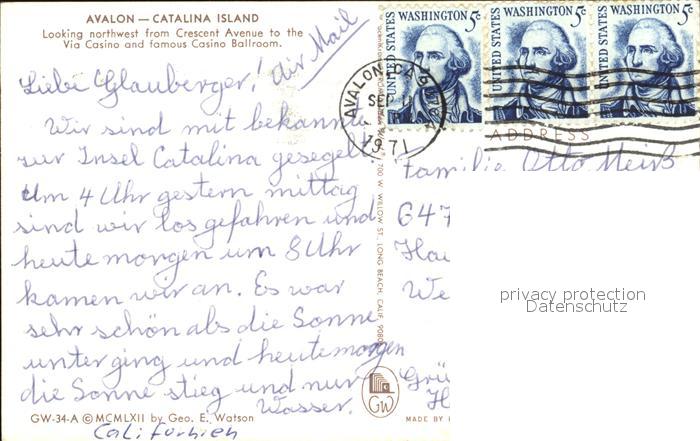 AVALON — CATALINA ISLAND
Looking northwest from Crescent Avenue to the
Via Casino and famous Casino Ballroom.
Air Mail
UNITED STATES WASHINGTON 5c
UNITED STATES WASHINGTON 5c
UNITED STATES WASHINGTON 5c
AVALON, CA
SEP
1971
Liebe Glauberger!
Wir sind mit bekannte
zur Insel Catalina gesegelt.
Um 4 Uhr gestern mittag
sind wir losgefahren und
heute morgen um 8 Uhr
kamen wir an. Es war
sehr schön als die Sonne
unterging und heute morgen
die Sonne stieg und nur
Wasser.
GW-34-A © MCMLXII by Geo. E. Watson
Californien
700 W. WILLOW ST. LONG BEACH, CALIF.
GW
MADE BY
ADDRESS
Familie Otto
647
Hau
We
Grü
H
privacy protection
Datenschutz